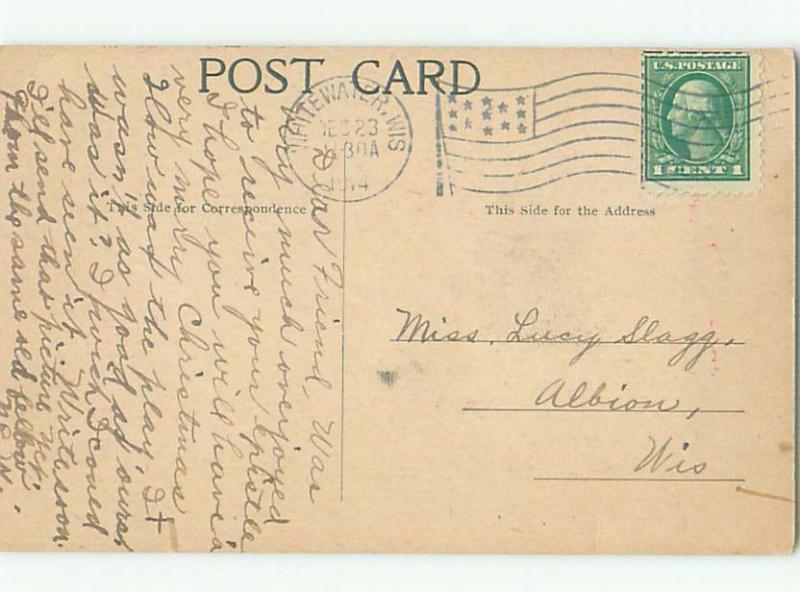 POST CARD
WHITEWATER, WIS
DEC 23
30A
1914
U.S. POSTAGE
1 CENT 1
This Side for Correspondence
This Side for the Address
Dear Friend, Was
very much overjoyed
to receive your epistle
I hope you will have a
very merry Christmas
How was the play. It
wasn't as good as ours,
was it? I wish I could
have seen it. Write soon.
I'll send that picture yet.
From the same old fellow.
Miss. Lucy Slagg,
Albion,
Wis